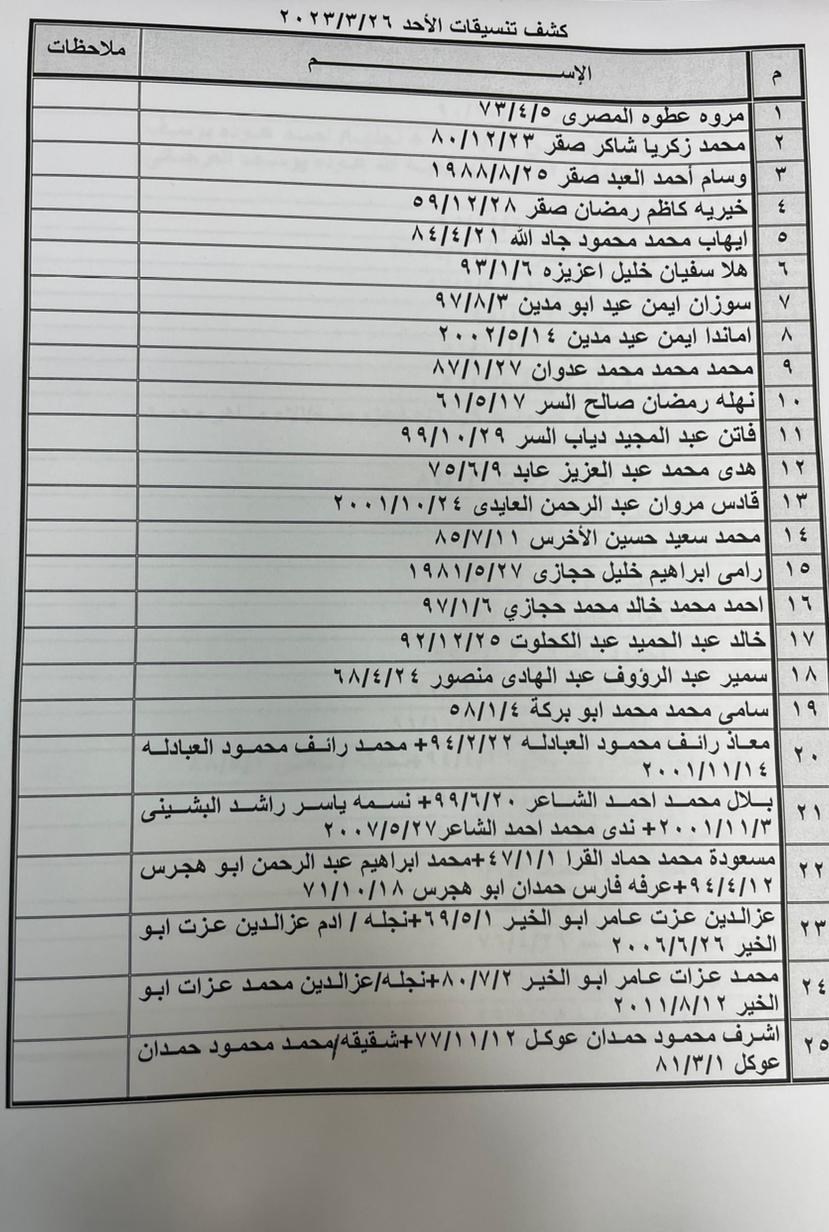 كشف تنسيقات الأحد ٢٠٢٣/٣/٢٦
م الإســـــم ملاحظات
١ مروه عطوه المصرى ٧٣/٤/٥
٢ محمد زكريا شاكر صقر ٨٠/١٢/٢٣
٣ وسام أحمد العبد صقر ١٩٨٨/٨/٢٥
٤ خيريه كاظم رمضان صقر ٥٩/١٢/٢٨
٥ ايهاب محمد محمود جاد الله ٨٤/٤/٢١
٦ هلا سفيان خليل اعزيزه ٩٣/١/٦
٧ سوزان ايمن عيد ابو مدين ٩٧/٨/٣
٨ اماندا ايمن عيد مدين ٢٠٠٢/٥/١٤
٩ محمد محمد محمد عدوان ٨٧/١/٢٧
١٠ نهله رمضان صالح السر ٦١/٥/١٧
١١ فاتن عبد المجيد دياب السر ٩٩/١٠/٢٩
١٢ هدى محمد عبد العزيز عابد ٧٥/٦/٩
١٣ قادس مروان عبد الرحمن العايدى ٢٠٠١/١٠/٢٤
١٤ محمد سعيد حسين الأخرس ٨٥/٧/١١
١٥ رامى ابراهيم خليل حجازى ١٩٨١/٥/٢٧
١٦ احمد محمد خالد محمد حجازي ٩٧/١/٦
١٧ خالد عبد الحميد عبد الكحلوت ٩٢/١٢/٢٥
١٨ سمير عبد الرؤوف عبد الهادى منصور ٦٨/٤/٢٤
١٩ سامى محمد محمد ابو بركة ٥٨/١/٤
٢٠ معاذ رائف محمود العبادله ٩٤/٢/٢٢+ محمد رائف محمود العبادله
٢٠٠١/١١/١٤
٢١ بلال محمد احمد الشاعر ٩٩/٦/٢٠+ نسمه ياسر راشد البشينى
٢٠٠١/١١/٣+ ندى محمد احمد الشاعر٢٠٠٧/٥/٢٧
٢٢ مسعودة محمد حماد القرا ٤٧/١/١+محمد ابراهيم عبد الرحمن ابو هجرس
٩٤/٤/١٢+عرفه فارس حمدان ابو هجرس ٧١/١٠/١٨
٢٣ عزالدين عزت عامر ابو الخير ٦٩/٥/١+نجله / ادم عزالدين عزت ابو
الخير ٢٠٠٦/٦/٢٦
٢٤ محمد عزات عامر ابو الخير ٨٠/٧/٢+نجله/عزالدين محمد عزات ابو
الخير ٢٠١١/٨/١٢
٢٥ اشرف محمود حمدان عوكل ٧٧/١١/١٢+شقيقه/محمد محمود حمدان
عوكل ٨١/٣/١